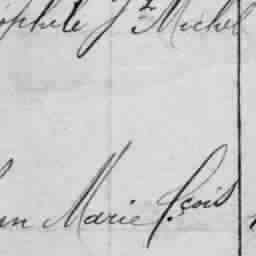 ophile J. Michel
en Marie Fçois